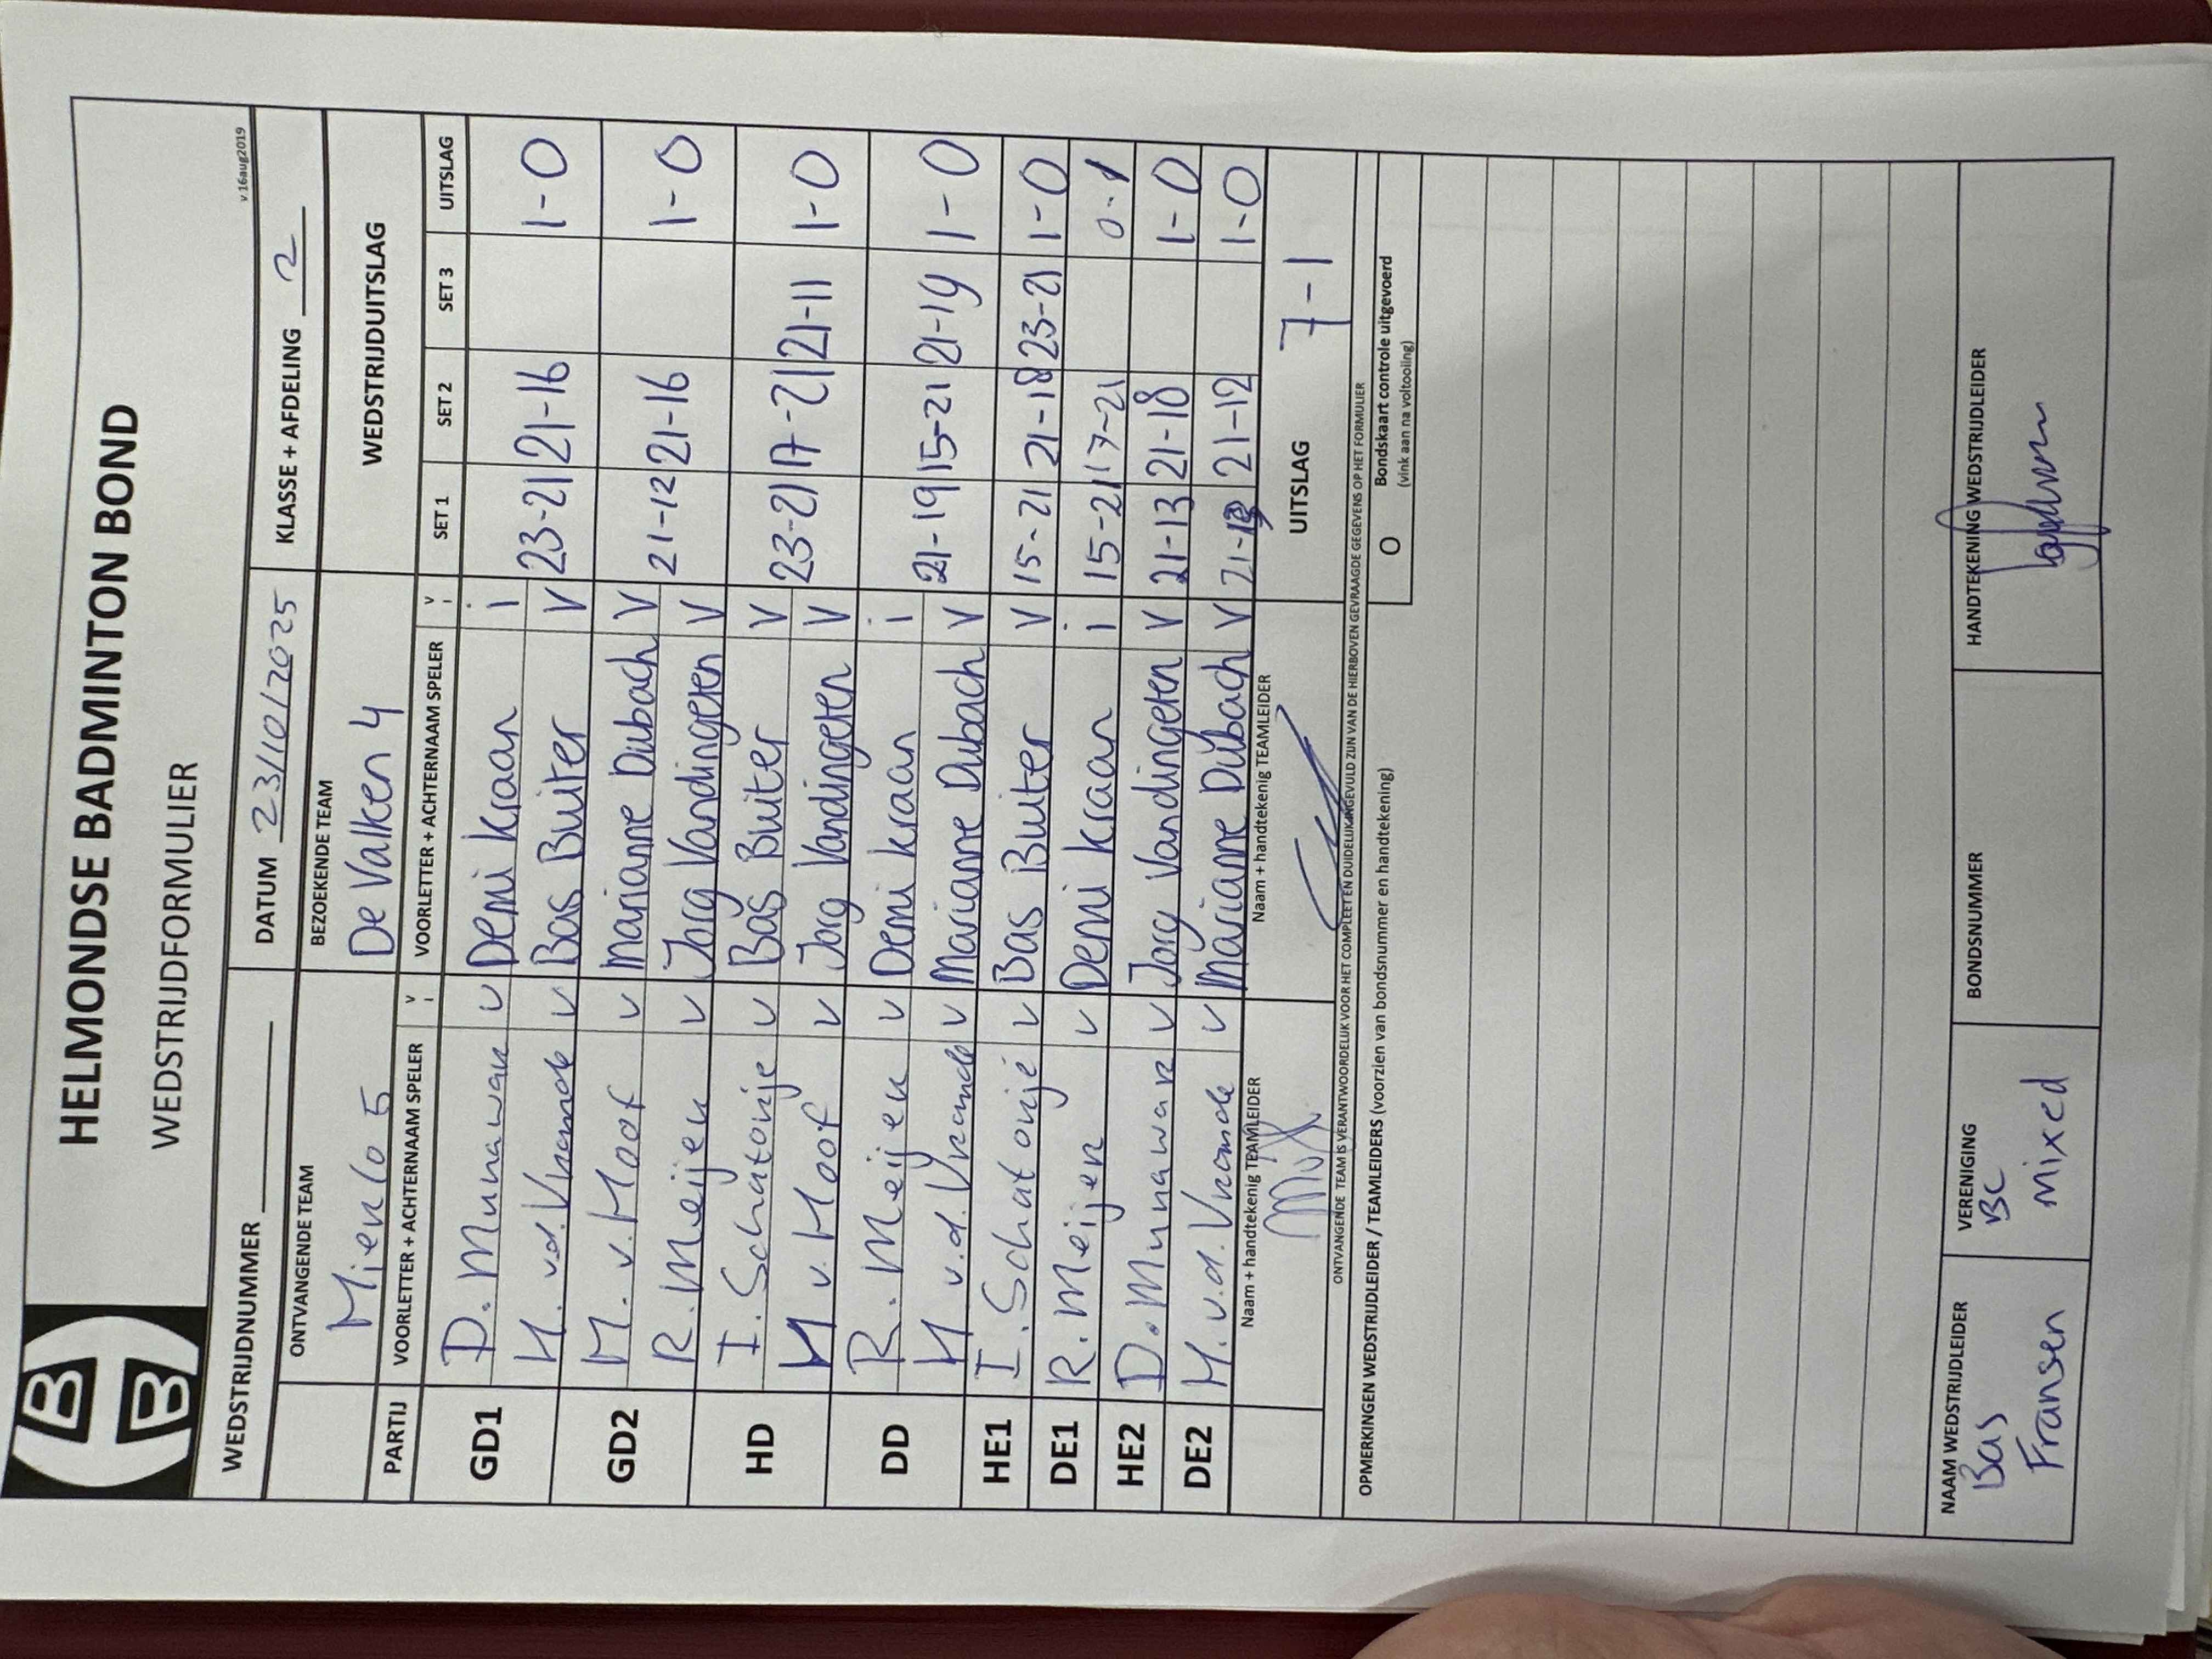 HELMONDSE BADMINTON BOND
WEDSTRIJDFORMULIER
v.16aug2019
WEDSTRIJDNUMMER DATUM 23/10/2025 KLASSE + AFDELING 2
ONTVANGENDE TEAM BEZOEKENDE TEAM WEDSTRIJDUITSLAG
Mierlo 5 De Valken 4
PARTIJ VOORLETTER + ACHTERNAAM SPELER V I VOORLETTER + ACHTERNAAM SPELER V I SET 1 SET 2 SET 3 UITSLAG
GD1 D. Munawar V Demi Kraan i
H. v.d. Vrande V Bas Buiter V 23-21 21-16 1-0
GD2 M. v. Hoof V Marianne Dubach V
R. Meijer V Jorg Vandingeren V 21-12 21-16 1-0
HD I. Schatorije V Bas Buiter V
M v. Hoof V Jorg Vandingeren V 23-21 17-21 21-11 1-0
DD R. Meijer V Demi Kraan i
H v.d. Vrande V Marianne Dubach V 21-19 15-21 21-19 1-0
HE1 I. Schatorijé V Bas Buiter V 15-21 21-18 23-21 1-0
DE1 R. Meijer V Demi Kraan i 15-21 17-21 0-1
HE2 D. Munawar V Jorg Vandingeren V 21-13 21-18 1-0
DE2 H. v.d. Vrande V Marianne Dubach V 21- 21-12 1-0
Naam + handtekenig TEAMLEIDER Naam + handtekenig TEAMLEIDER UITSLAG 7-1
ONTVANGENDE TEAM IS VERANTWOORDELIJK VOOR HET COMPLEET EN DUIDELIJK INGEVULD ZIJN VAN DE HIERBOVEN GEVRAAGDE GEGEVENS OP HET FORMULIER
OPMERKINGEN WEDSTRIJDLEIDER / TEAMLEIDERS (voorzien van bondsnummer en handtekening) O Bondskaart controle uitgevoerd
(vink aan na voltooiing)
NAAM WEDSTRIJDLEIDER VERENIGING BONDSNUMMER HANDTEKENING WEDSTRIJDLEIDER
Bas BC
Fransen Mixed